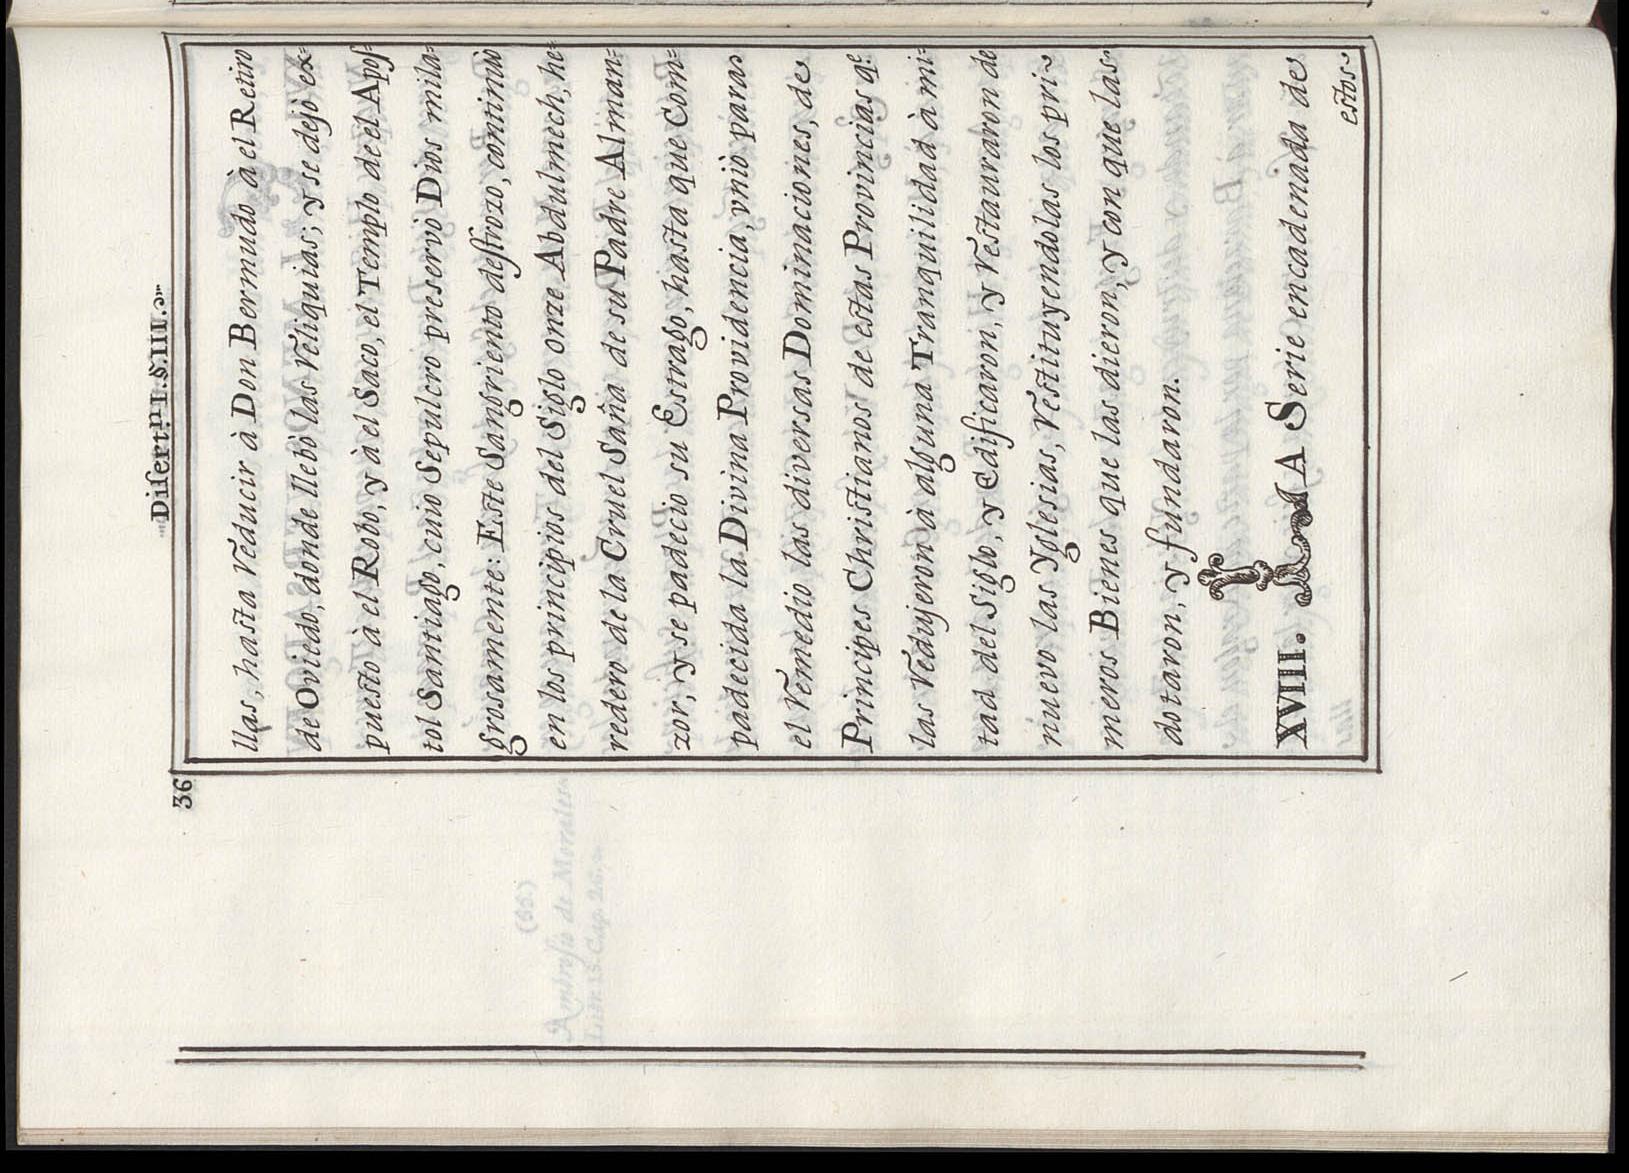 36
Disert.ⁿ I. §. III.
llas, hasta reducir à Don Bermudo à el Retiro
de Oviedo, donde llebò las reliquias; y se dejò ex=
puesto à el Robo, y à el Saco, el Templo de el Apos=
tol Santiago, cuio Sepulcro preservò Dios mila=
grosamente: Este Sangriento destrozo, continuò
en los principios del Siglo onze Abdulmech, he=
redero de la Cruel Saña de su Padre Alman=
zor, y se padeciò su Estrago, hasta que Com=
padecida la Divina Providencia, vniò para
el remedio las diversas Dominaciones, de
Principes Christianos de estas Provincias q.e
las redujeron à alguna Tranquilidad à mi=
tad del Siglo, y Edificaron, y restauraron de
nuevo las Yglesias, restituyendolas los pri
meros Bienes que las dieron, y con que las
dotaron, y fundaron.
XVIII. LA Serie encadenada de
estos